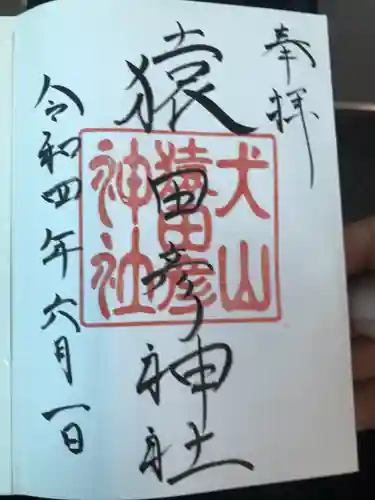 奉拝
猿田彦神社
犬山
猿田彦
神社
令和四年六月一日